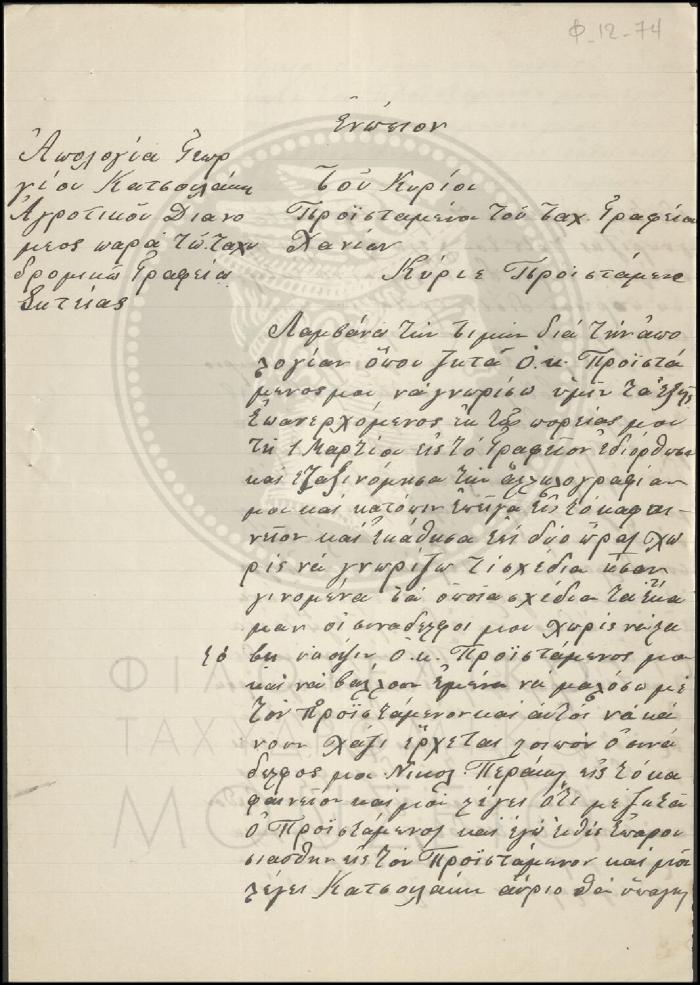 Φ-12-74
Ἐνώπιον
Ἀπολογία Γεωρ
γίου Κατσουλάκη
Ἀγροτικοῦ Διανο
μεος παρά τῶ ταχυ
δρομικῶ Γραφεία
Σητείας
Τοῦ Κυρίου
Προϊσταμένου τοῦ ταχ. Γραφείου
Χανίων
Κύριε Προϊστάμενε
Λαμβάνω την τιμήν διά την ἀπο
λογίαν ὅπου ζητά ὁ κ. Προϊστά
μενος μου να γνωρίσω ὑμῖν τα ἑξῆς
Ἐπανερχόμενος ἐκ τῆς πορείας μου
τη 1 Μαρτίου εις τό Γραφεῖον ἐδιόρθωσα
και εταξινόμησα την ἀλληλογραφίαν
μου και κατόπιν ἐπῆγα εἰς τό καφαι-
νεῖον και ἐκάθησα ἐκεῖ δύο ὥρας χω
ρίς νά γνωρίζω τι σχέδια ἦσαν
γινομένα τα ὁποῖα σχέδια τα ἔκα
μαν οι συναδελφοι μου χωρίς να λα
βη το ὄψιν ὁ κ. Προϊστάμενος μου
και να βάλλουν ἐμένα να μαλόσω μέ
τόν Προϊστάμενον και αὐτοί νά κά
νουν χάζι ἔρχεται λοιπόν ὁ συνά
δελφος μου Νικολ. Περάκης εἰς τό κα
φαινεῖον και μοῦ λέγει ὅτι με ζητᾶ
ὁ Προϊστάμενος και ἐγώ εὐθύς ἐπαρου
σιάσθην εἰς τόν Προϊστάμενον και μοῦ
λέγει Κατσουλάκη αὔριο θα ὑπάγης
ΦΙΛΟΤΕΛΙΚΟ
ΤΑΧΥΔΡΟΜΙΚΟ
ΜΟΥΣΕΙΟ